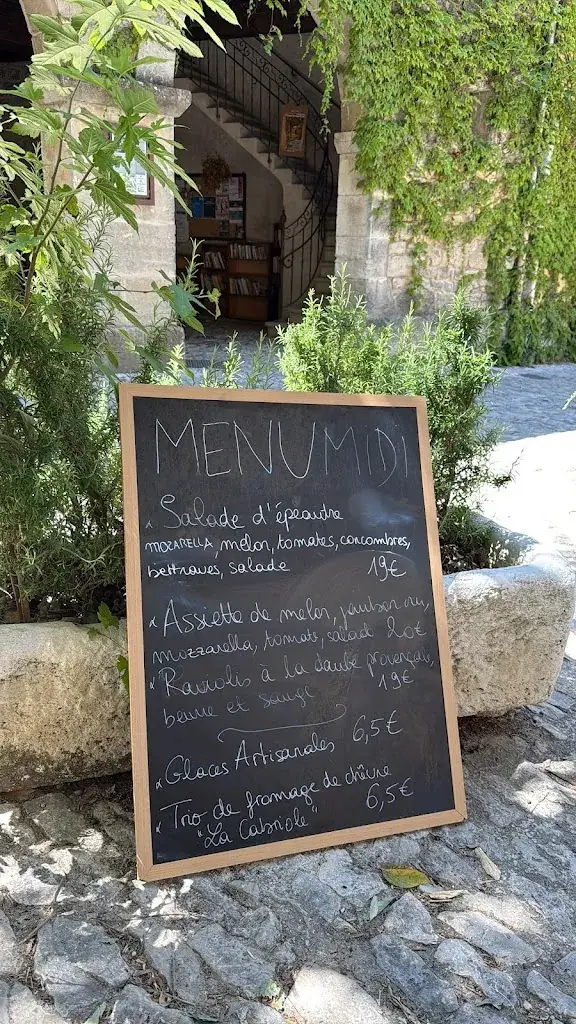 MENU MIDI
x Salade d'épeautre
MOZARELLA, melon, tomates, concombres,
bettraves, salade 19€
x Assiette de melon, jambon cru,
mozzarella, tomate, salade 20€
x Raviolis à la daube provençale,
beurre et sauge 19€
x Glaces Artisanales 6,5€
x Trio de fromage de chèvre
"La Cabriole" 6,5€